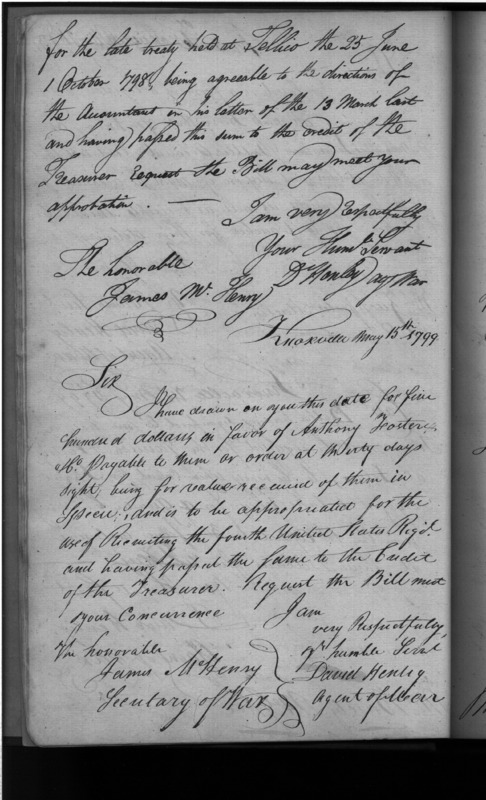 for the late treaty held at Tellico the 25 June
1 October 798, being agreeable to the directions of
the Accountant in his letter of the 13 March last
and having passed this sum to the credit of the
Treasurer Request the Bill may meet your
approbation. —
I am very Respectfully
Your Humbl Servant
D Henley agt War
The honorable
James Mc Henry
Knoxville May 15th 1799
Sir
I have drawn on you this date for five
hundred dollars in favor of Anthony Foster
& Co. Payable to them or order at thirty days
sight, being for value received of them in
Specie, and is to be appropriated for the
use of Recruiting the fourth United States Regt.
and having passed the same to the Credit
of the Treasurer. Request the Bill meet
your Concurrence
I am
very Respectfully
yr humble Servt
David Henley
Agent of War
The honorable
James McHenry
Secretary of War